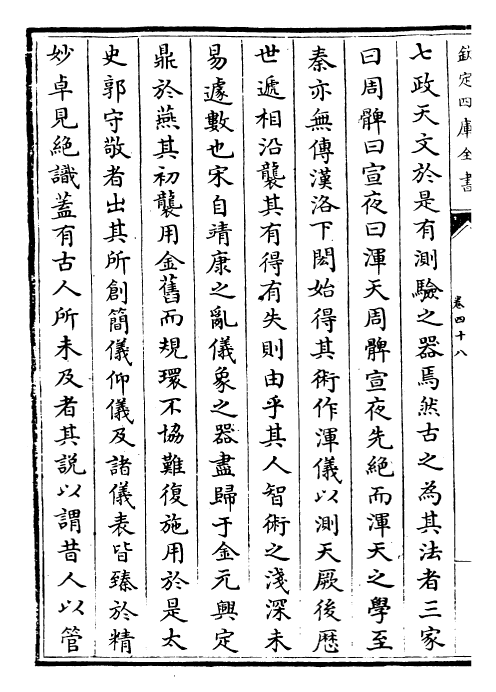 欽定四庫全書
卷四十八
七政天文於是有測驗之器焉然古之為其法者三家
曰周髀曰宣夜曰渾天周髀宣夜先絶而渾天之學至
秦亦無傳漢洛下閎始得其術作渾儀以測天厥後歴
世遞相沿襲其有得有失則由乎其人智術之淺深未
易遽數也宋自靖康之亂儀象之器盡歸于金元興定
鼎於燕其初襲用金舊而規環不協難復施用於是太
史郭守敬者出其所創簡儀仰儀及諸儀表皆臻於精
妙卓見絶識蓋有古人所未及者其説以謂昔人以管